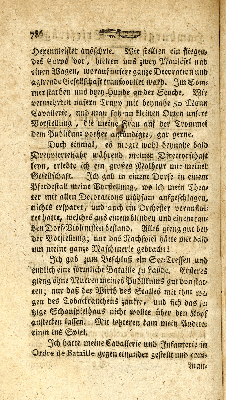 786
Hexenmeister anschrie. Wir stellten ein fliegen-
des Corps vor, hielten uns zwey Maulesel und
einen Wagen, worauf unsere ganze Decoration und
agirende Gesellschaft transportirt ward. Im Som-
mer starben uns drey Hunde an der Seuche. Wir
vermehrten unsern Trupp mit beynahe 30 Mann
Cavallerie, und man sah in kleinen Orten unsere
Vorstellung, die meine Frau auf der Trommel
dem Publikum vorher ankündigte, gar gerne.
Noch einmal, es mogte wohl beynahe bald
Dreyvierteljahr während meiner Directorschaft
seyn, erlebte ich ein großes Malheur mit meiner
Gesellschaft. Ich gab in einem Dorfe in einem
Pferdestall meine Vorstellung, wo ich mein Thea-
ter mit allen Decorationen mühsam aufgeschlagen,
nichts erspart, und auch ein Orchester veranstal-
tet hatte, welches aus einem blinden und einem tau-
ben Dorf-Violinisten bestand. Alles gieng gut bey
der Vorstellung, nur das Nachspiel hätte mir bald
um meine ganze Maschinerie gebracht!
Ich gab zum Beschluß ein See-Treffen und
endlich eine förmliche Bataille zu Lande. Ersteres
gieng ohne Murren meines Publikums gut von stat-
ten; nur daß der Wirth des Stalles mit ihm we-
gen des Tobackrauchens zankte, und sich das gan-
zige Schauspielhaus nicht wollte über den Kopf
anstecken lassen. Mit letzterem kam mein Anden-
ken ins Spiel.
Ich hatte meine Cavallerie und Infanterie in
Ordre de Bataille gegen einander gestellt und kom-
man-